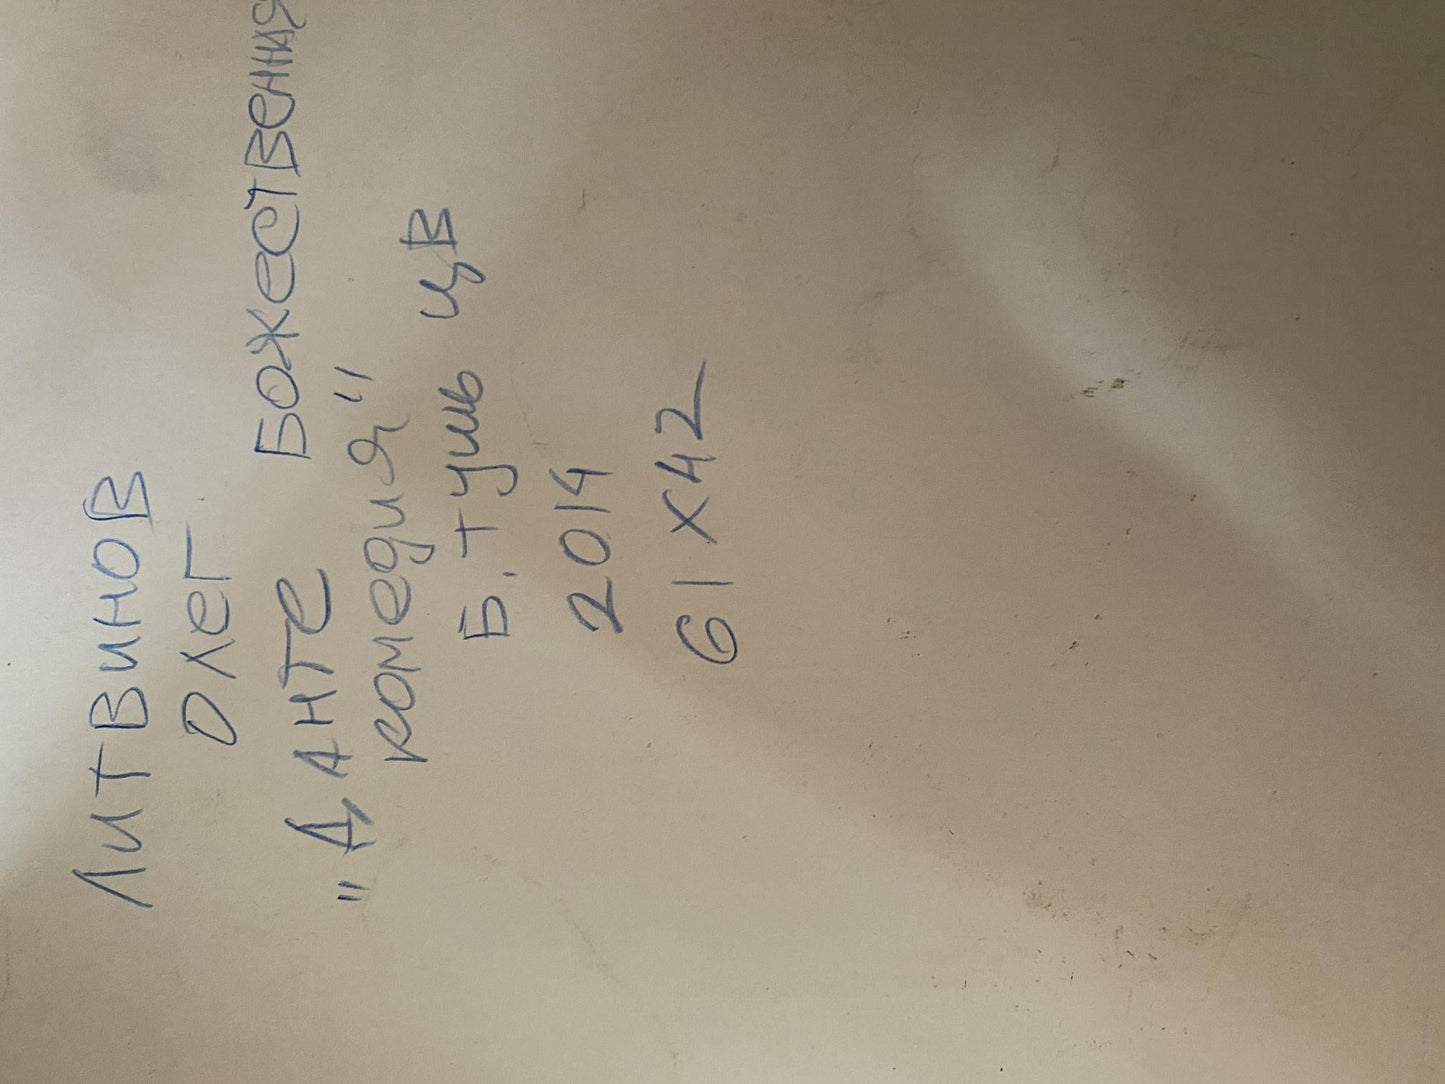 ЛИТВИНОВ
ОЛЕГ
"ДАНТЕ БОЖЕСТВЕННАЯ
комедия"
Б. тушь цв
2014
61 х 42